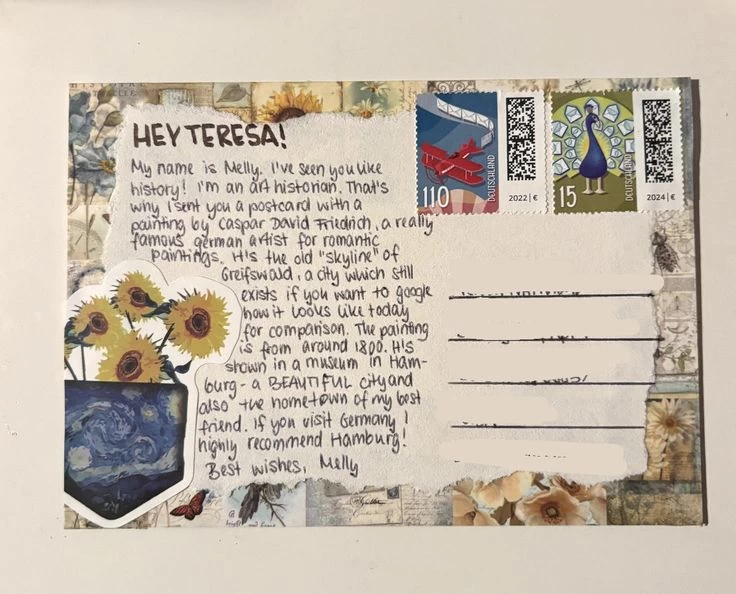 HEY TERESA!
My name is Melly. I've seen you like
history! I'm an art historian. That's
why I sent you a postcard with a
painting by Caspar David Friedrich, a really
famous german artist for romantic
paintings. It's the old "skyline" of
Greifswald, a city which still
exists if you want to google
how it looks like today
for comparison. The painting
is from around 1800. It's
shown in a museum in Ham-
burg - a BEAUTIFUL city and
also the hometown of my best
friend. If you visit Germany I
highly recommend Hamburg!
Best wishes, Melly
110
DEUTSCHLAND
2022 | €
15
DEUTSCHLAND
2024 | €